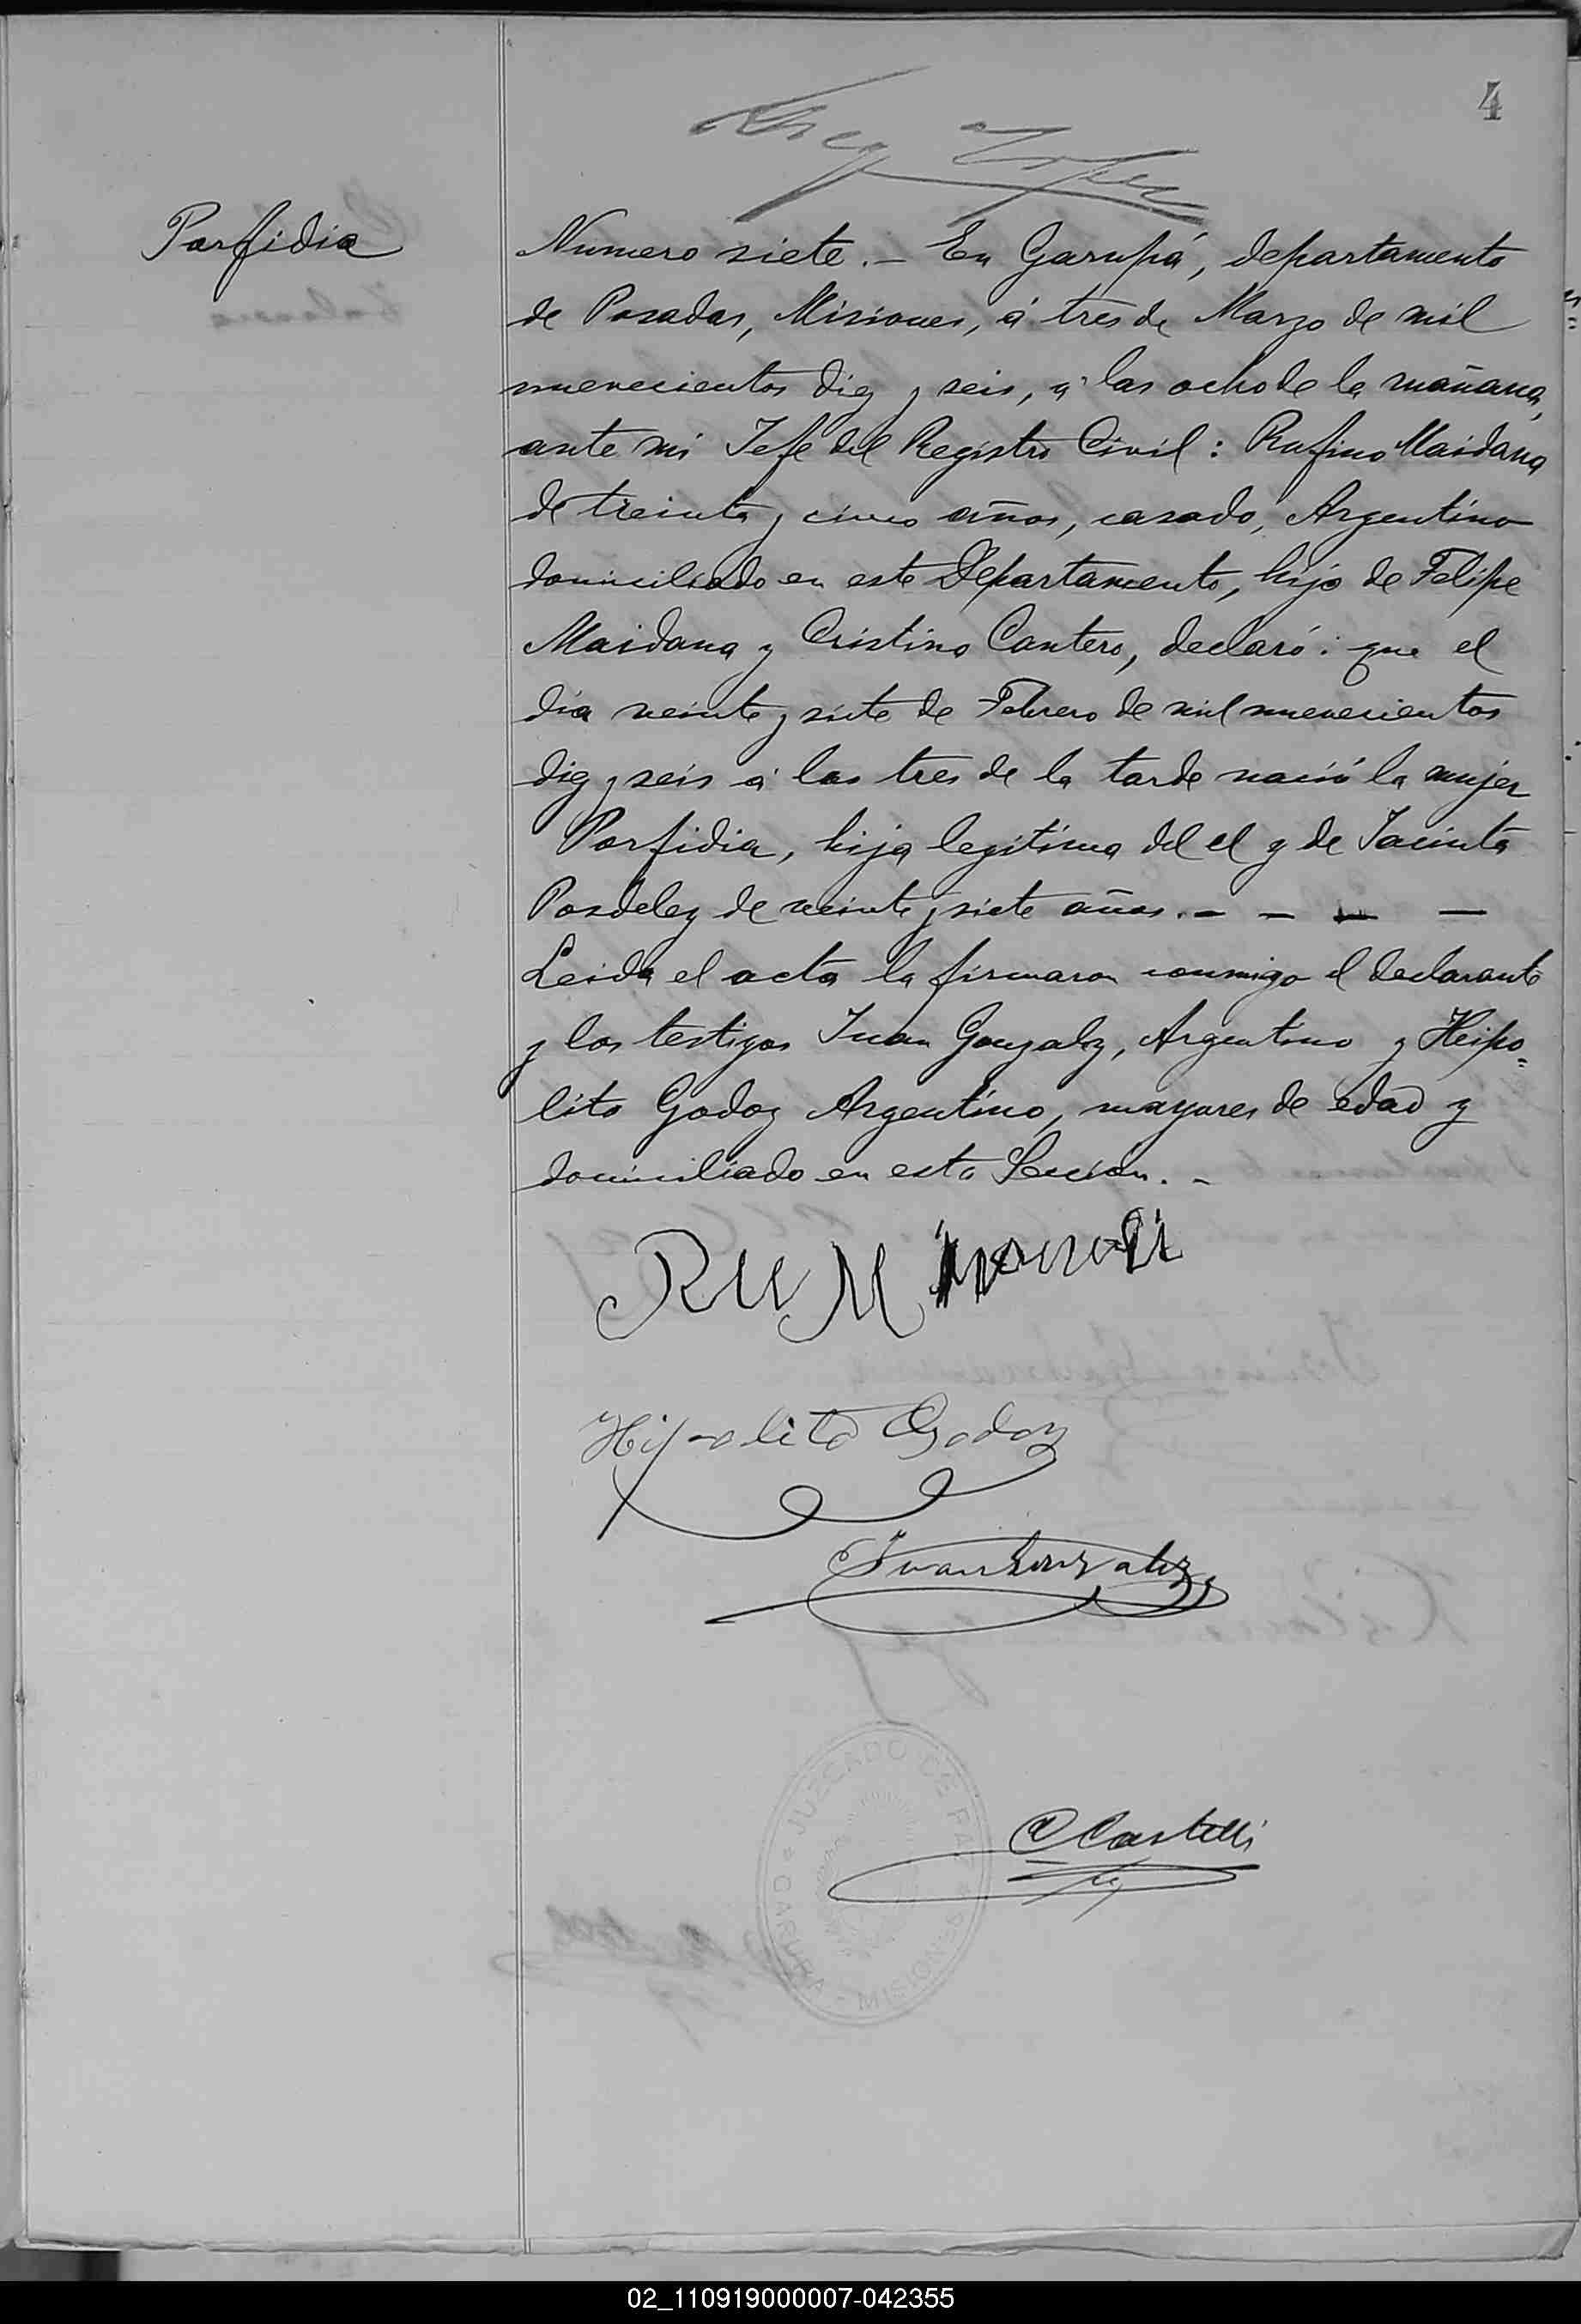 4
Porfidia
Numero siete. - En Garupá, departamento
de Posadas, Misiones, á tres de Marzo de mil
nuevecientos diez y seis, a las ocho de la mañana,
ante mi Jefe del Registro Civil: Rufino Maidana
de treinta y cinco años, casado, Argentino
domiciliado en este Departamento, hijo de Felipe
Maidana y Cristina Cantero, declaró: que el
día veinte y siete de Febrero de mil nuevecientos
diez y seis á las tres de la tarde nació la mujer
Porfidia, hija legitima del el y de Jacinta
de veinte y siete años. - - - -
Leida el acta la firmaron conmigo el declarante
y los testigos Juan Gonzalez, Argentino y Heipo=
lito Godoy Argentino, mayores de edad y
domiciliado en esta Sección. -
Hipolito Godoy
Juan Gonzalez
JUZGADO DE PAZ
GARUPA - MISIONES
C Castelli
02_110919000007-042355